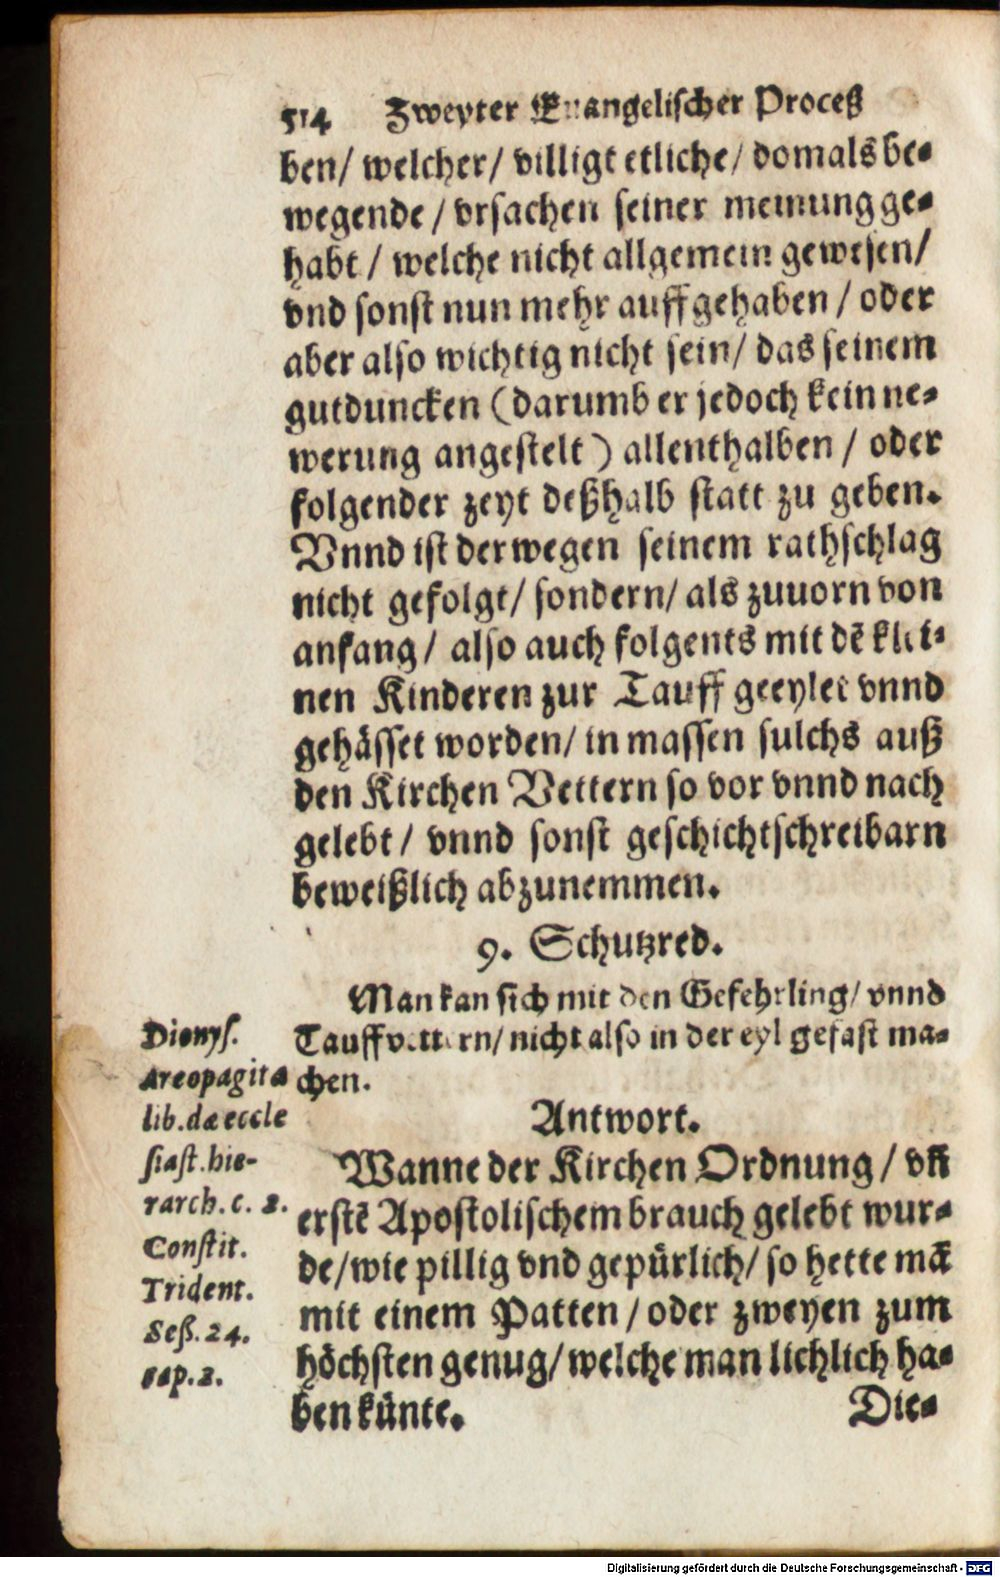 514 Zweyter Euangelischer Proceß
ben/ welcher/ villigt etliche/ domals be-
wegende / vrsachen seiner meinung ge-
habt / welche nicht allgemein gewesen/
vnd sonst nun mehr auffgehaben / oder
aber also wichtig nicht sein/ das seinem
gutduncken (darumb er jedoch kein ne-
werung angestelt ) allenthalben / oder
folgender zeyt deßhalb statt zu geben.
Vnnd ist derwegen seinem rathschlag
nicht gefolgt/ sondern/ als zuuorn von
anfang / also auch folgents mit dē klei-
nen Kinderen zur Tauff geeylet vnnd
gehässet worden/ in massen sulchs auß
den Kirchen Vettern so vor vnnd nach
gelebt / vnnd sonst geschichtschreibarn
beweißlich abzunemmen.
9. Schutzred.
Man kan sich mit den Gefehrling/ vnnd
Tauffvettern/ nicht also in der eyl gefast ma-
chen.
Antwort.
Wanne der Kirchen Ordnung / vñ
erstē Apostolischem brauch gelebt wur-
de/wie pillig vnd gepürlich/ so hette mā
mit einem Patten / oder zweyen zum
höchsten genug/ welche man lichlich ha-
ben künte.
Die-
Dionys.
Areopagita
lib. dæ eccle
siast. hie-
rarch. c. 2.
Constit.
Trident.
Seß. 24.
cap. 2.
Digitalisierung gefördert durch die Deutsche Forschungsgemeinschaft - DFG